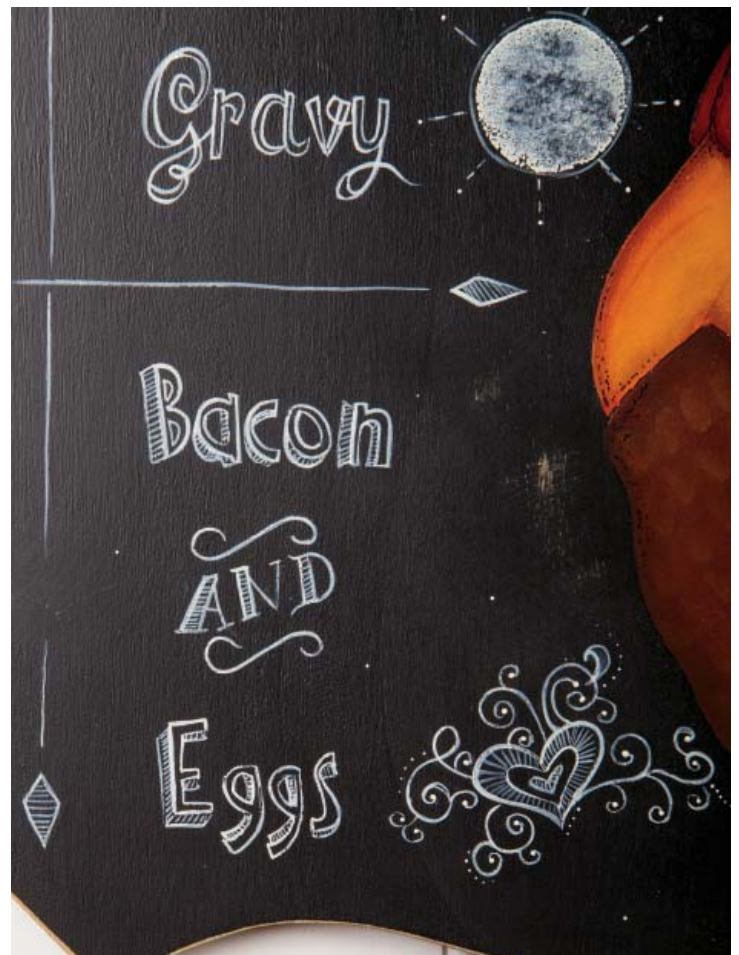 Gravy
Bacon
AND
Eggs